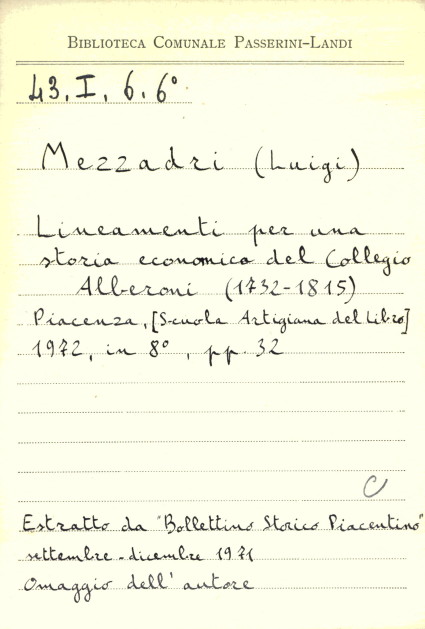 BIBLIOTECA COMUNALE PASSERINI-LANDI
43. I. 6. 6°
Mezzadri (Luigi)
Lineamenti per una
storia economica del Collegio
Alberoni (1732-1815)
Piacenza, [Scuola Artigiana del Libro]
1972, in 8°, pp. 32
C
Estratto da "Bollettino Storico Piacentino"
settembre-dicembre 1971
Omaggio dell'autore